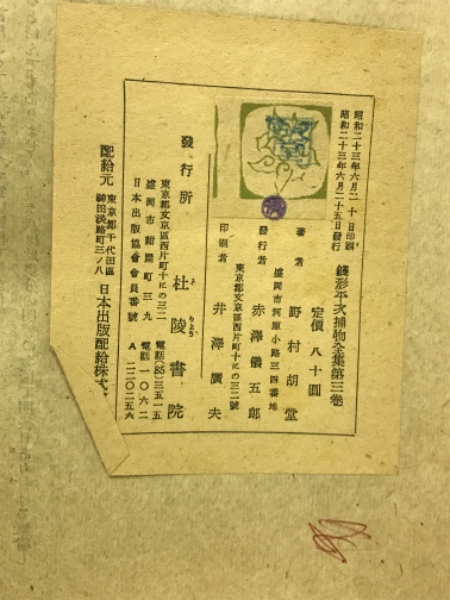 昭和二十三年六月二十日印刷
昭和二十三年六月二十五日發行
銭形平次捕物全集第三巻
定價 八十圓
著者 野村胡堂
盛岡市河原小路三四番地
發行者 赤澤儀五郎
東京都文京區西片町十にの三二號
印刷者 井澤廣夫
發行所 杜陵書院
とりよう
東京都文京區西片町十にの三二 電話(85)三五一五
盛岡市紺屋町三九 電話一〇六二
日本出版協會會員番號 A 二二〇二五六
配給元 東京都千代田區神田淡路町三ノ八 日本出版配給株式